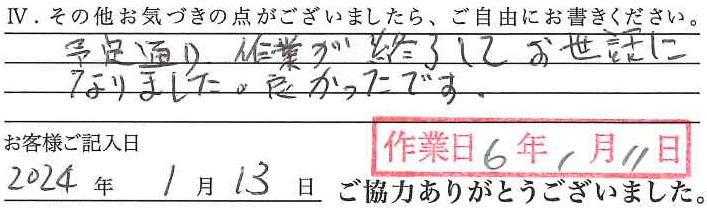 Ⅳ．その他お気づきの点がございましたら、ご自由にお書きください。
予定通り 作業が終了してお世話に
なりました。良かったです。
お客様ご記入日
作業日6年1月11日
2024年 1月13日 ご協力ありがとうございました。